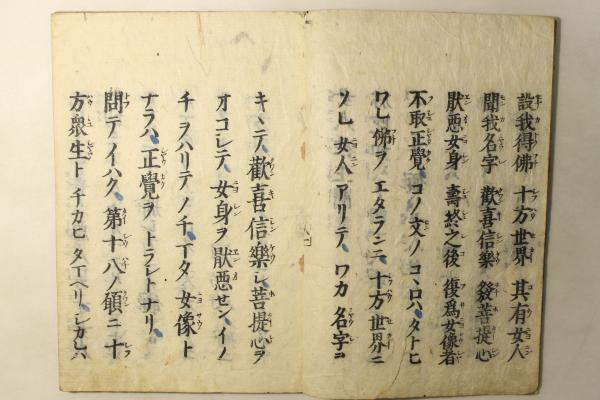 設我得佛 十方世界 其有女人
聞我名字 歡喜信樂 發菩提心
厭惡女身 壽終之後 復爲女像者
不取正覺、コノ文ノコヽロハ、タトヒ
ワレ佛ヲエタランニ、十方世界ニ
ソレ女人アリテ、ワカ名字ヲ
キヽテ、歡喜信樂シ菩提心ヲ
オコシテ、女身ヲ厭惡セン、イノ
チヲハリテノチ、マタ女像ト
ナラハ、正覺ヲトラシトナリ、
問テイハク、第十八ノ願ニ十
方衆生トチカヒタマヘリ、シカレハ